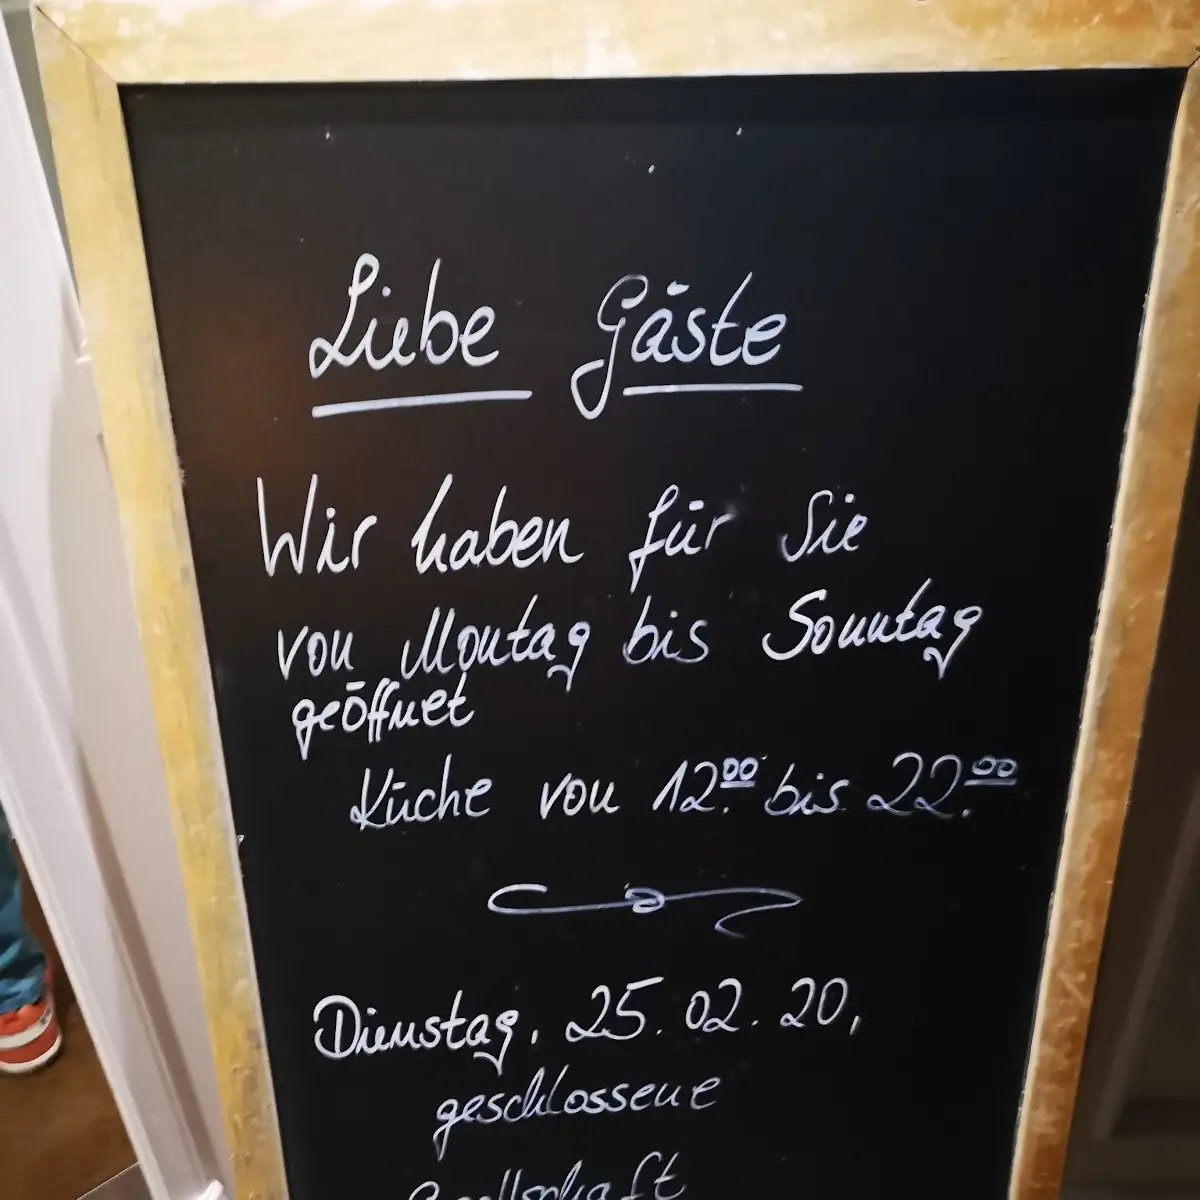 Liebe Gäste
Wir haben für Sie
von Montag bis Sonntag
geöffnet
Küche von 12.00 bis 22.00
Dienstag, 25.02.20,
geschlossene
Gesellschaft